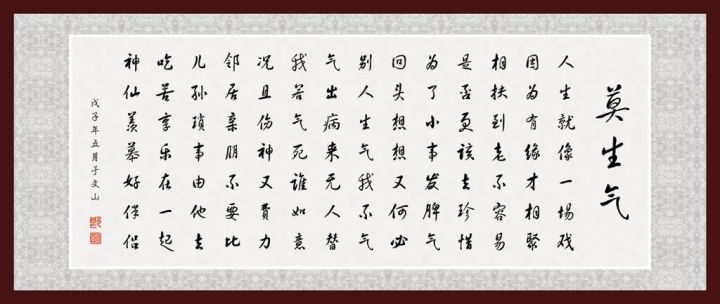 莫生气
人生就像一場戏
因为有缘才相聚
相扶到老不容易
是否更该去珍惜
为了小事发脾气
回头想想又何必
别人生气我不气
气出病来无人替
我若气死谁如意
况且伤神又費力
邻居亲朋不要比
儿孙琐事由他去
吃苦享乐在一起
神仙羡慕好伴侣
戊子年五月于文山